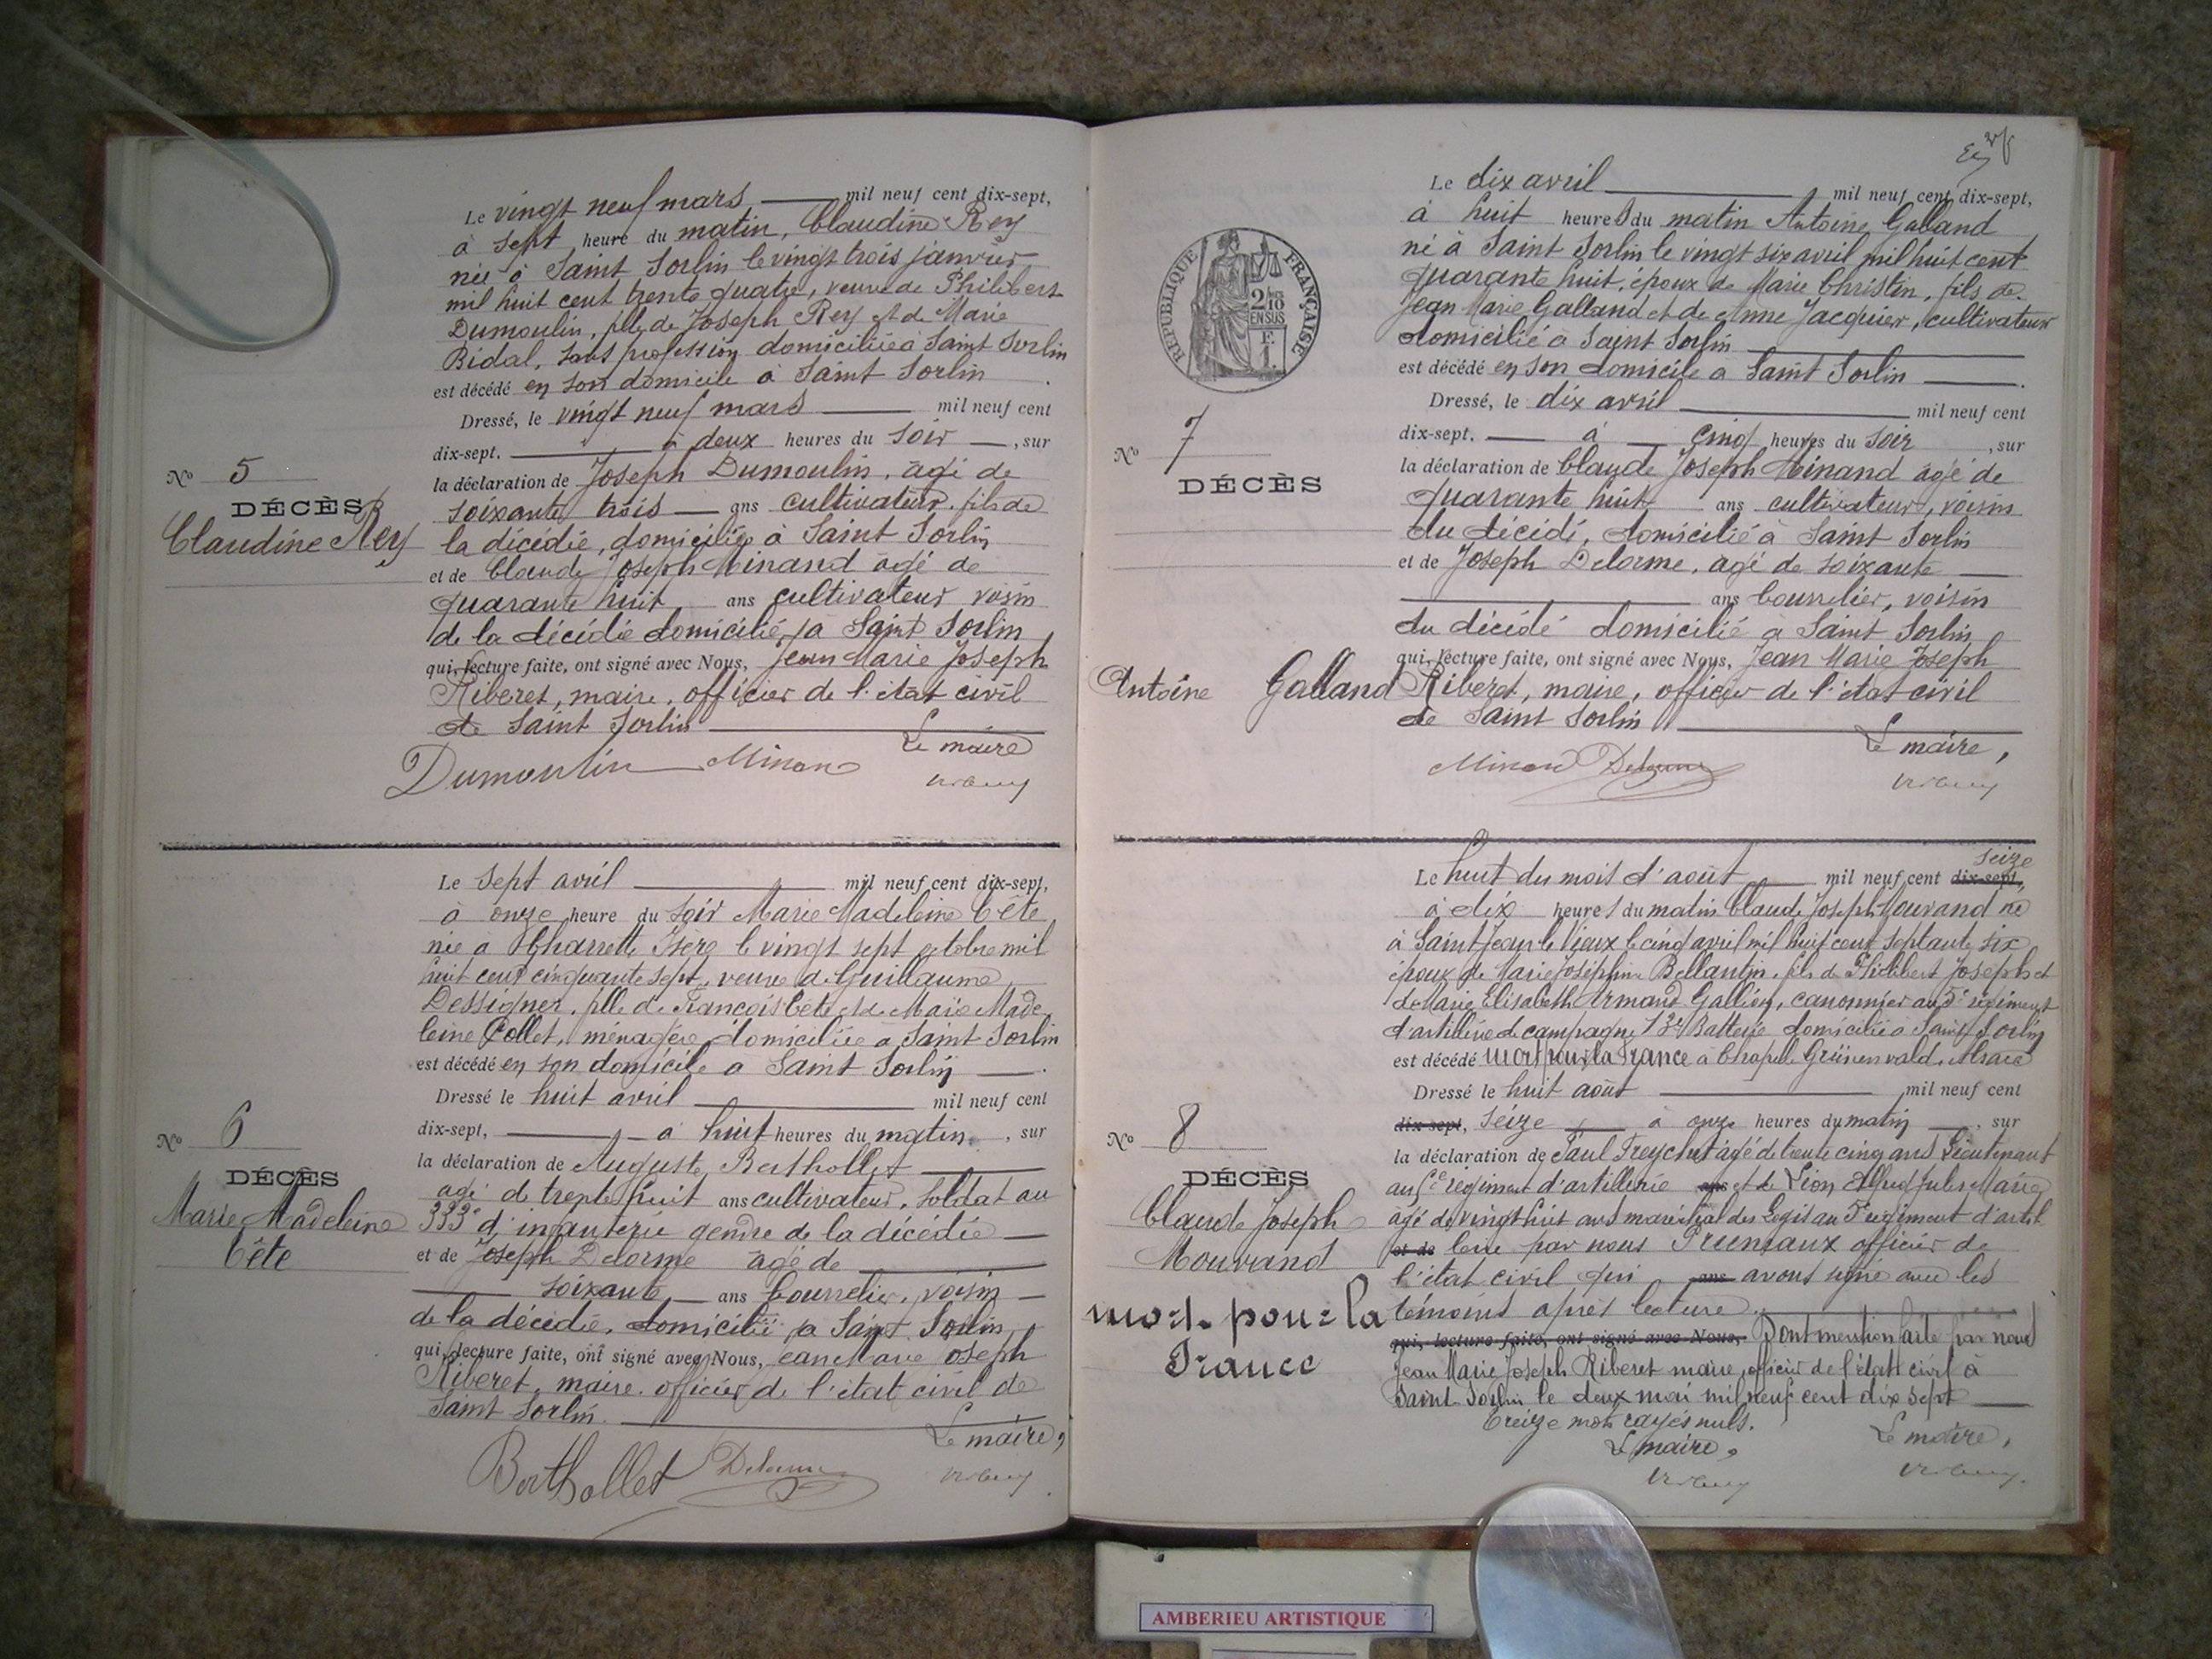 Le vingt neuf mars mil neuf cent dix-sept,
à sept heure du matin, Claudine Rey
née à Saint Sorlin le vingt trois janvier
mil huit cent trente quatre, veuve de Philibert
Dumoulin, fille de Joseph Rey et de Marie
Bidal, sans profession domiciliée à Saint Sorlin
est décédé en son domicile à Saint Sorlin.
Dressé, le vingt neuf mars mil neuf cent
dix-sept. à deux heures du soir, sur
la déclaration de Joseph Dumoulin, âgé de
soixante trois ans cultivateur, fils de
la décédée, domicilié à Saint Sorlin
et de Claude Joseph Minand âgé de
quarante huit ans cultivateur voisin
de la décédée domicilié, à Saint Sorlin
qui, lecture faite, ont signé avec Nous, Jean Marie Joseph
Riberet, maire, officier de l'état civil
de Saint Sorlin
Le maire
Dumoulin Minand
No 5
DÉCÈS
Claudine Rey
Le sept avril mil neuf cent dix-sept,
à onze heure du soir Marie Madeleine Cête
née à Charrette Isère le vingt sept octobre mil
huit cent cinquante sept, veuve de Guillaume
Dessigner, fille de François Cête et de Marie Made
leine Pollet, ménagère domiciliée à Saint Sorlin
est décédé en son domicile à Saint Sorlin.
Dressé le huit avril mil neuf cent
dix-sept, à huit heures du matin, sur
la déclaration de Auguste Berthollet
âgé de trente huit ans cultivateur, soldat au
333e d'infanterie gendre de la décédée
et de Joseph Delorme âgé de
soixante ans bourrelier, voisin
de la décédée, domicilié à Saint Sorlin
qui, lecture faite, ont signé avec Nous, Jean Marie Joseph
Riberet, maire, officier de l'état civil de
Saint Sorlin.
Le maire,
Berthollet Delorme
No 6
DÉCÈS
Marie Madeleine
Cête
RÉPUBLIQUE FRANÇAISE
2/10
EN SUS
Le dix avril mil neuf cent dix-sept,
à huit heures du matin Antoine Galland
né à Saint Sorlin le vingt six avril mil huit cent
quarante huit, époux de Marie Christin, fils de
Jean Marie Galland et de Anne Jacquier, cultivateur
domicilié à Saint Sorlin
est décédé en son domicile à Saint Sorlin.
Dressé, le dix avril mil neuf cent
dix-sept. à cinq heures du soir, sur
la déclaration de Claude Joseph Minand âgé de
quarante huit ans cultivateur, voisin
du décédé, domicilié à Saint Sorlin
et de Joseph Delorme, âgé de soixante
ans bourrelier, voisin
du décédé domicilié à Saint Sorlin
qui, lecture faite, ont signé avec Nous, Jean Marie Joseph
Riberet, maire, officier de l'état civil
de Saint Sorlin
Le maire,
Minand Delorme
No 7
DÉCÈS
Antoine Galland
seize
Le huit du mois d'août mil neuf cent dix-sept,
à dix heures du matin Claude Joseph Mourand né
à Saint Jean le Vieux le cinq avril mil huit cent septante six
époux de Marie Joséphine Bellantin, fils de Philibert Joseph et
de Marie Elisabeth Armand Gallien, canonnier au 5e régiment
d'artillerie de campagne 13e Batterie domicilié à Saint Sorlin
est décédé mort pour la France à Chapelle Grünenwald, Alsace
Dressé le huit août mil neuf cent
dix-sept, seize à onze heures du matin, sur
la déclaration de Paul âgé de trente cinq ans Lieutenant
au 5e régiment d'artillerie ans et de Léon Alfred Jules Marie
âgé de vingt huit ans maréchal des Logis au 5e régiment d'artil
et de lerie par nous officier de
l'état civil qui ans avons signé avec les
témoins après lecture.
qui, lecture faite, ont signé avec Nous, Dont mention faite par nous
Jean Marie Joseph Riberet maire, officier de l'état civil à
Saint Sorlin le deux mai mil neuf cent dix sept
treize mots rayés nuls.
Le maire, Le maire,
No 8
DÉCÈS
Claude Joseph
Mourand
mort pour la
France
AMBERIEU ARTISTIQUE